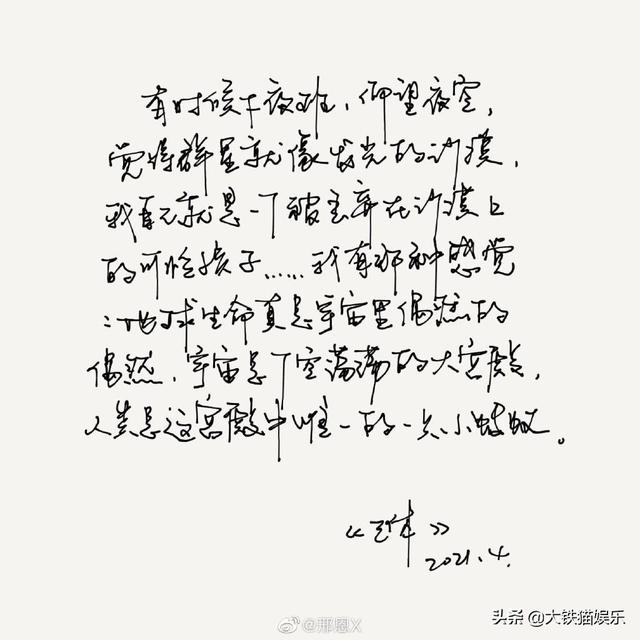 有时候下夜班，仰望夜空，
觉得群星就像发光的沙漠，
我自己就是一个被丢弃在沙漠上
的可怜孩子……我有那种感觉
：地球生命真是宇宙里偶然的
偶然，宇宙是个空荡荡的大宫殿，
人类是这宫殿中唯一的一只小蚂蚁。
《三体》
2021.4.
@那恩X
头条 @大铁猫娱乐